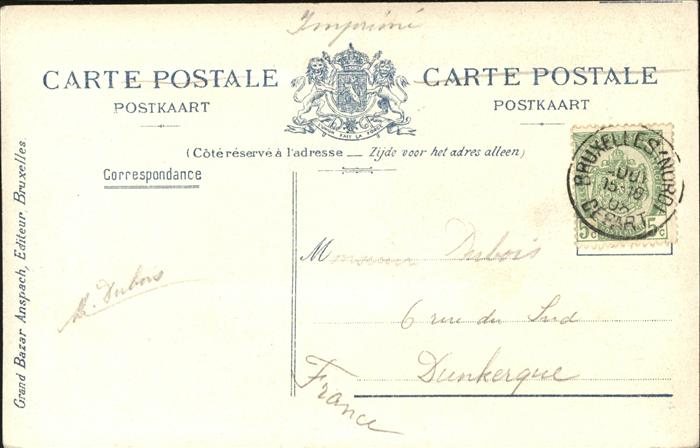 Imprimé
CARTE POSTALE
POSTKAART
CARTE POSTALE
POSTKAART
L'UNION FAIT LA FORCE
(Côté réservé à l'adresse — Zijde voor het adres alleen)
Correspondance
Grand Bazar Anspach, Editeur, Bruxelles.
BRUXELLES (NORD)
15-16
DEPART
5c 5c
Monsieur Dubois
6 rue du Sud
Dunkerque
France
M. Dubois